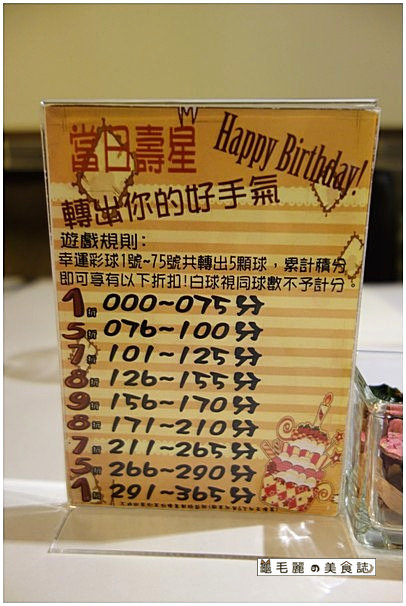 當日壽星
Happy Birthday!
轉出你的好手氣
遊戲規則:
幸運彩球1號~75號共轉出5顆球,累計積分
即可享有以下折扣!白球視同球數不予計分。
1折 000~075分
5折 076~100分
7折 101~125分
8折 126~155分
9折 156~170分
8折 171~210分
7折 211~265分
5折 266~290分
1折 291~365分
毛麗の美食誌